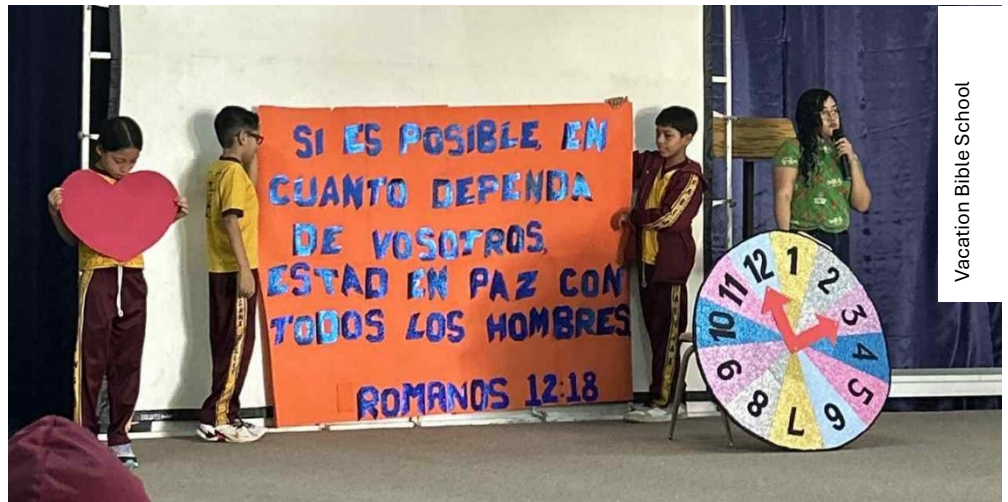 SI ES POSIBLE, EN
CUANTO DEPENDA
DE VOSOTROS,
ESTAD EN PAZ CON
TODOS LOS HOMBRES
ROMANOS 12:18
12
1
2
3
4
5
6
7
8
9
10
11
Vacation Bible School